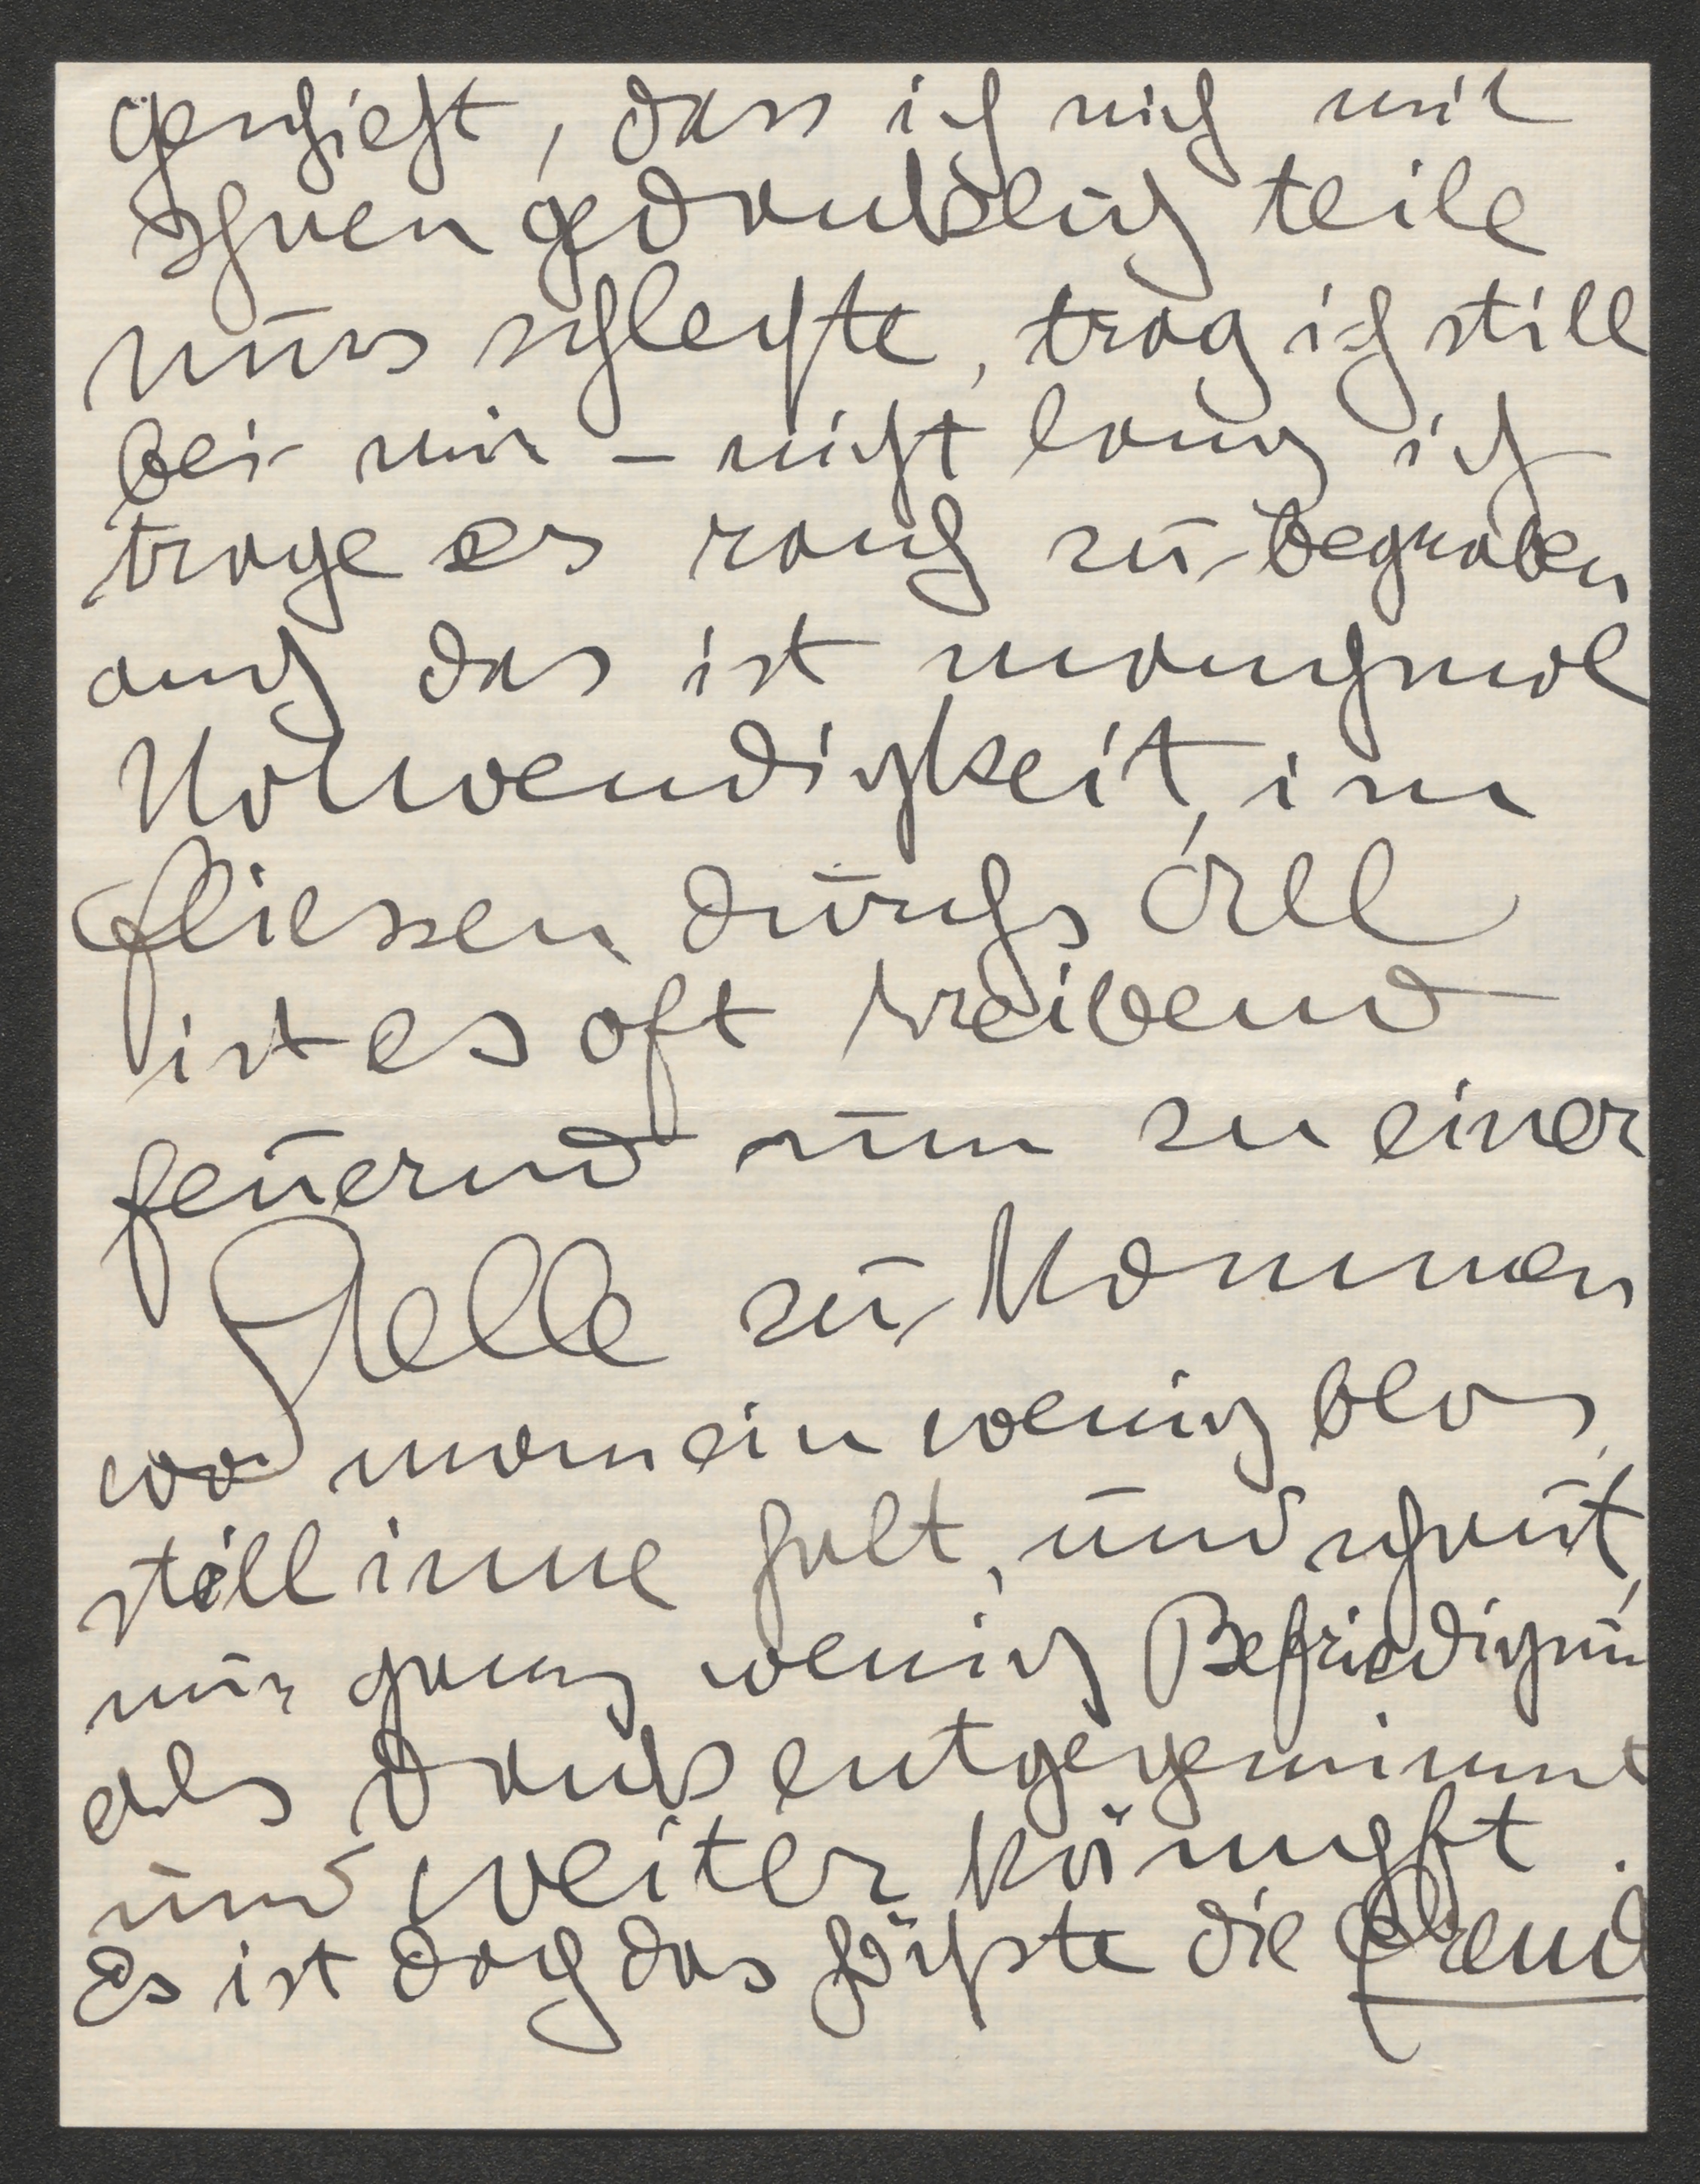 geschieht, dass ich mich mit
Ihnen gedanklich teile
nurs schlechte, trag ich still
bei mir – nicht lang ich
trage es rasch zu begraben
auch das ist manchmal
Notwendigkeit, im
fliessen durchs All
ist es oft treibend
feuernd um zu einer
Stelle zu kommen
wo man ein wenig blos
still inne halt, und schaut,
nur ganz wenig Befriedigun
als Dank entgegennimmt
und weiter kämpft.
Es ist doch das höchste die Freud